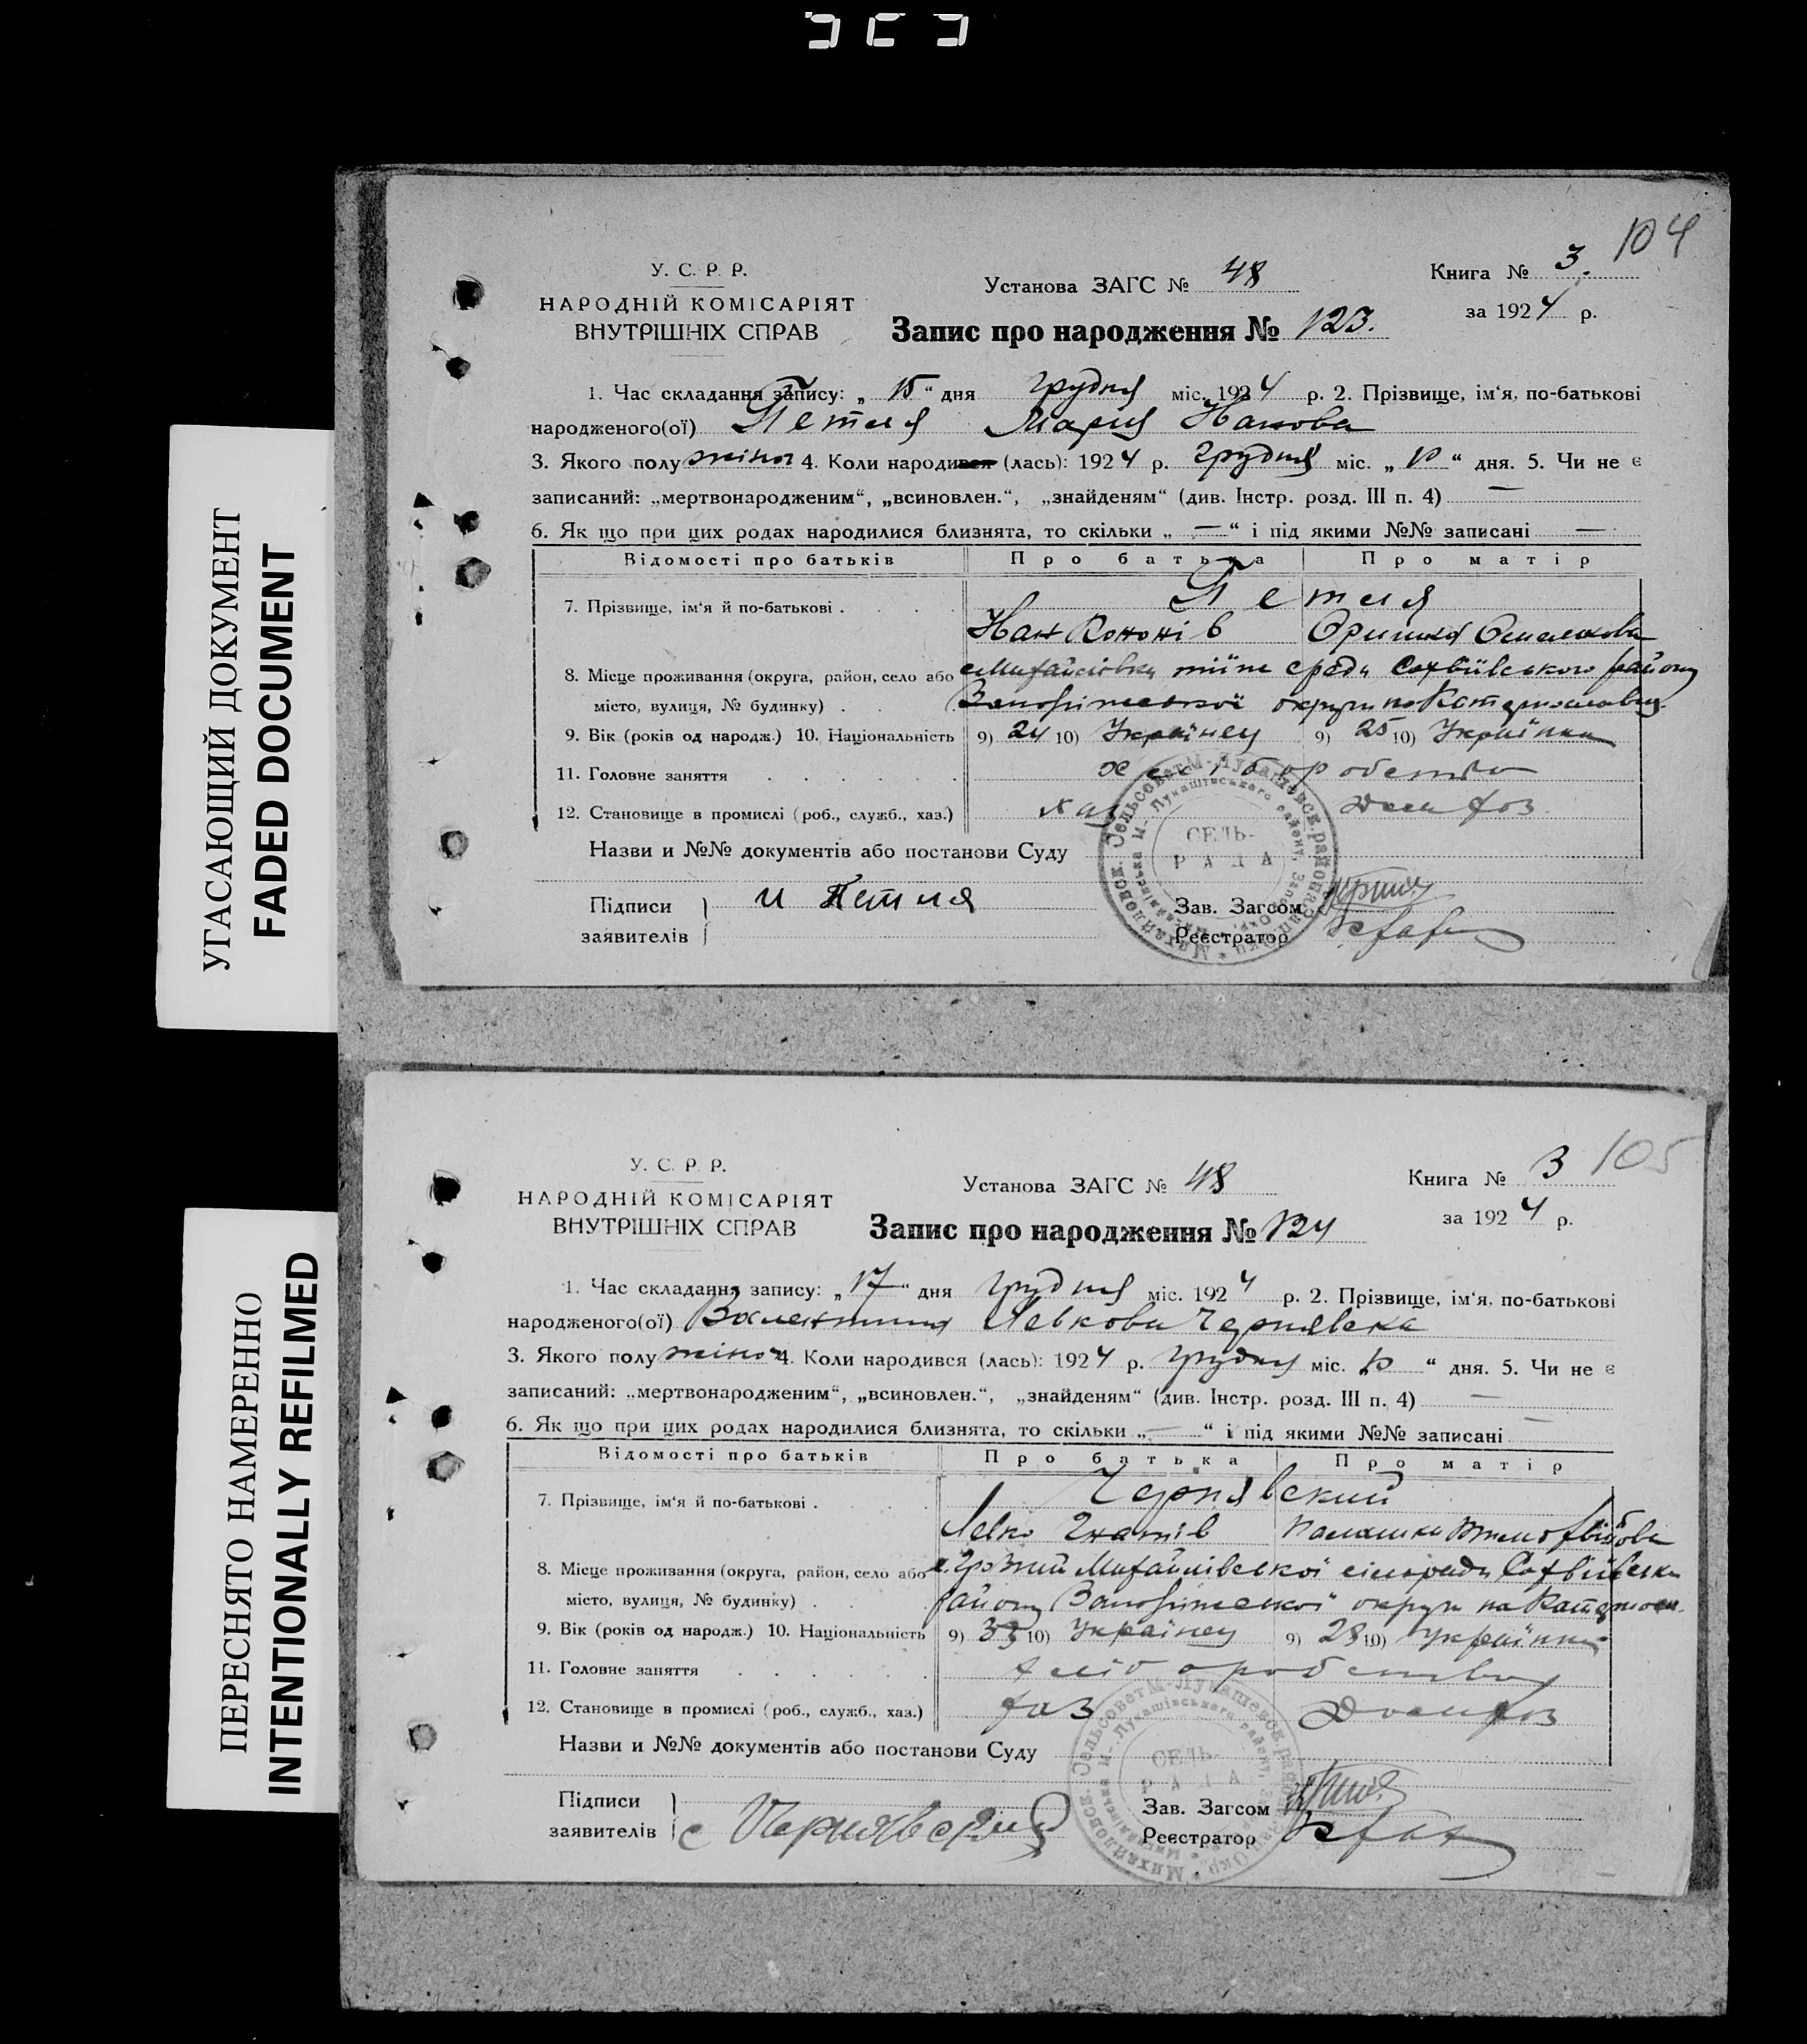 104
У. С. Р. Р.
НАРОДНІЙ КОМІСАРІЯТ
ВНУТРІШНІХ СПРАВ
Установа ЗАГС № 48
Книга № 3.
за 1924 р.
Запис про народження № 123.
1. Час складання запису: „ 15 “ дня грудня міс. 1924 р. 2. Прізвище, ім‘я, по-батькові
народженого(ої) Петля Мария Иванова
3. Якого полу жіноч 4. Коли народився (лась): 1924 р. Грудня міс. „ 10 “ дня. 5. Чи не є
записаний: „мертвонародженим“, „всиновлен.“, „знайденям“ (див. Інстр. розд. III п. 4) —
6. Як що при цих родах народилися близнята, то скільки „ — “ і під якими №№ записані —
Відомості про батьків Про батька Про матір
7. Прізвище, ім‘я й по-батькові . Петля
Иван Кононів Оришка
8. Місце проживання (округа, район, село або Михайлівки сради Софіївського району
місто, вулиця, № будинку) . Запоріжської округи на Катеринославщ.
9. Вік (років од народж.) 10. Національність 9) 24 10) Українец 9) 25 10) Українка
11. Головне заняття хліборобство
12. Становище в промислі (роб., служб., хаз.) хаз Дом хоз
Назви и №№ документів або постанови Суду
Підписи заявителів И Петля
Зав. Загсом
Реєстратор
СЕЛЬ-
РАДА
105
У. С. Р. Р.
НАРОДНІЙ КОМІСАРІЯТ
ВНУТРІШНІХ СПРАВ
Установа ЗАГС № 48
Книга № 3
за 1924 р.
Запис про народження № 124
1. Час складання запису: „ 17 “ дня грудня міс. 1924 р. 2. Прізвище, ім‘я, по-батькові
народженого(ої) Валентина Левкова Чернявска
3. Якого полу жіноч 4. Коли народився (лась): 1924 р. грудня міс. „ 10 “ дня. 5. Чи не є
записаний: „мертвонародженим“, „всиновлен.“, „знайденям“ (див. Інстр. розд. III п. 4) —
6. Як що при цих родах народилися близнята, то скільки „ — “ і під якими №№ записані —
Відомості про батьків Про батька Про матір
7. Прізвище, ім‘я й по-батькові . Чернявский
Левко Гнатів Палашка
8. Місце проживання (округа, район, село або Михайлівської сільради Софіївськ
місто, вулиця, № будинку) . району Запоріжської округи на Катеринос.
9. Вік (років од народж.) 10. Національність 9) 33 10) Українец 9) 28 10) Українка
11. Головне заняття хліборобство
12. Становище в промислі (роб., служб., хаз.) хаз Дом хоз
Назви и №№ документів або постанови Суду
Підписи заявителів Чернявский
Зав. Загсом
Реєстратор
СЕЛЬ-
РАДА
УГАСАЮЩИЙ ДОКУМЕНТ
FADED DOCUMENT
ПЕРЕСНЯТО НАМЕРЕННО
INTENTIONALLY REFILMED